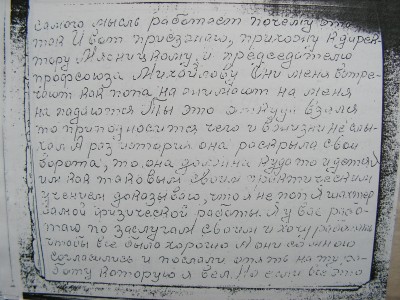 самого мысль работает почему это
так И вот приезжаю, прихожу к дирек
тору Мясницкому, и председателю
профсоюза Михайлову они меня встре-
чают как попа на снимают на меня
на падаются Ты это откуда взялся
то приподносится чего и в жизни не слы-
хал А раз история она раскрыла свои
ворота, то она должна куда то идетя
им как таковым своим практическим
учением доказываю, что я не поп Я шахтер
самой физической работы. Я у вас рабо-
таю по заслугам своим и хочу работать
чтобы все было хорошо И они со мною
согласились и послали опять на ту ра-
боту которую я вел. Но если все это